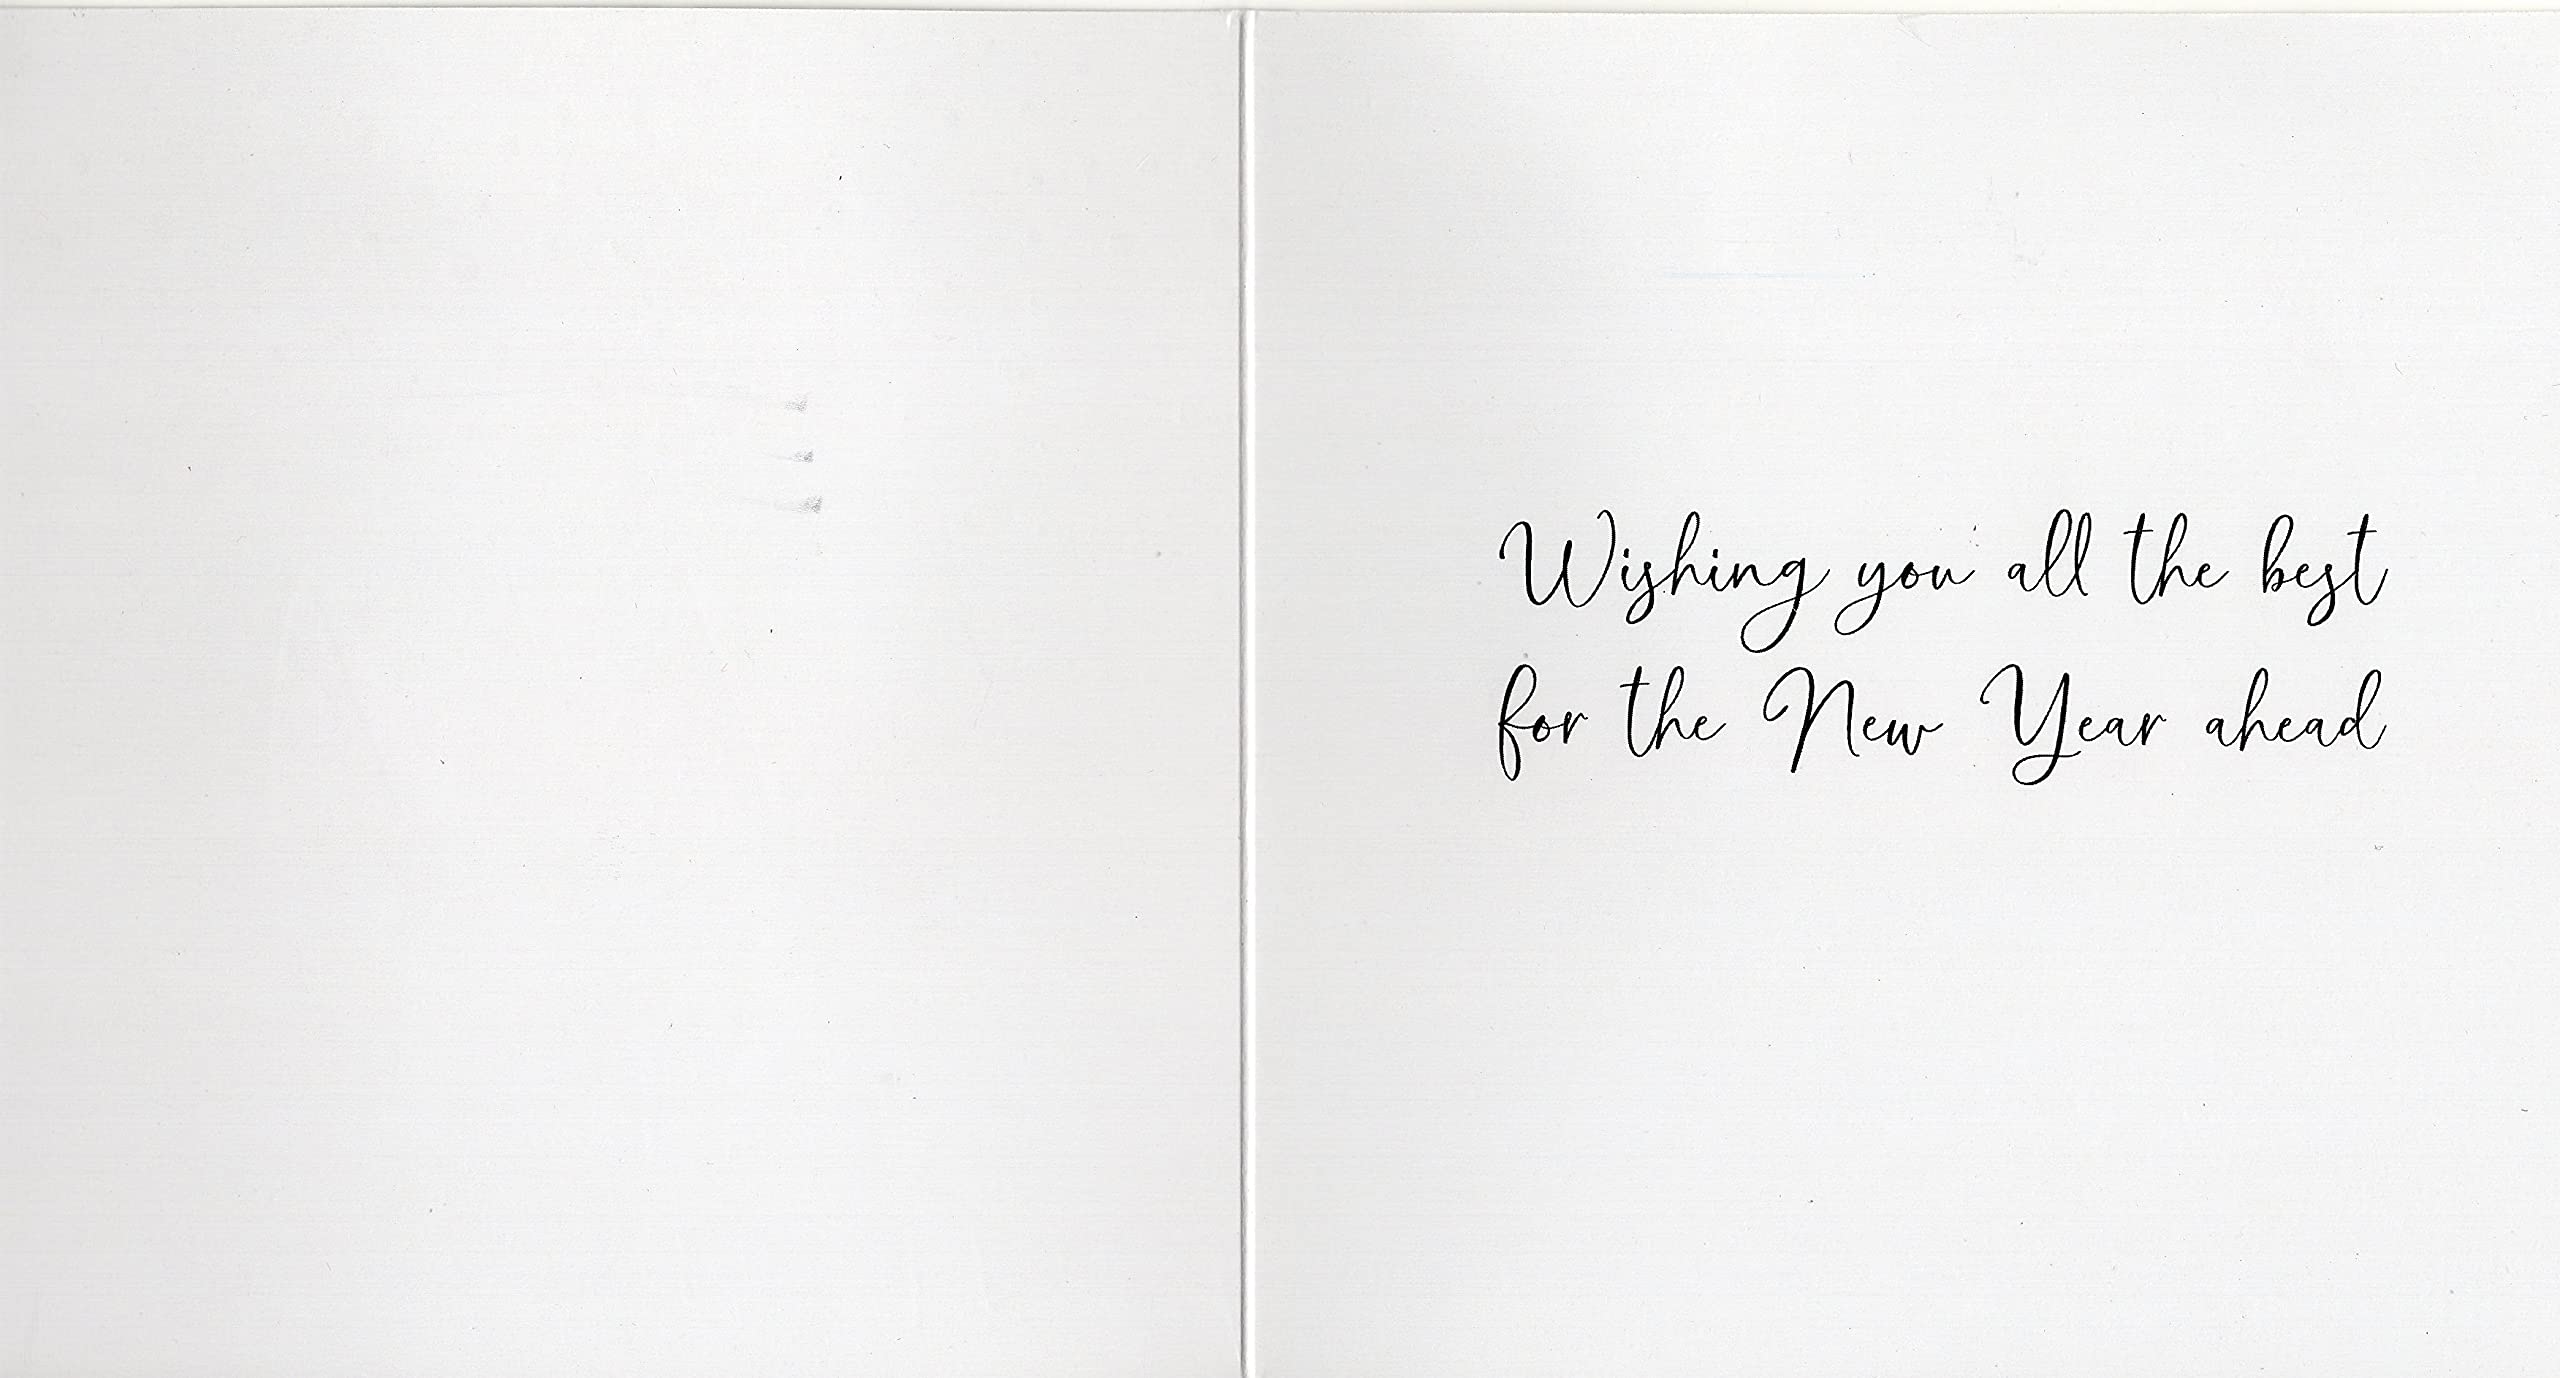 Wishing you all the best
for the New Year ahead